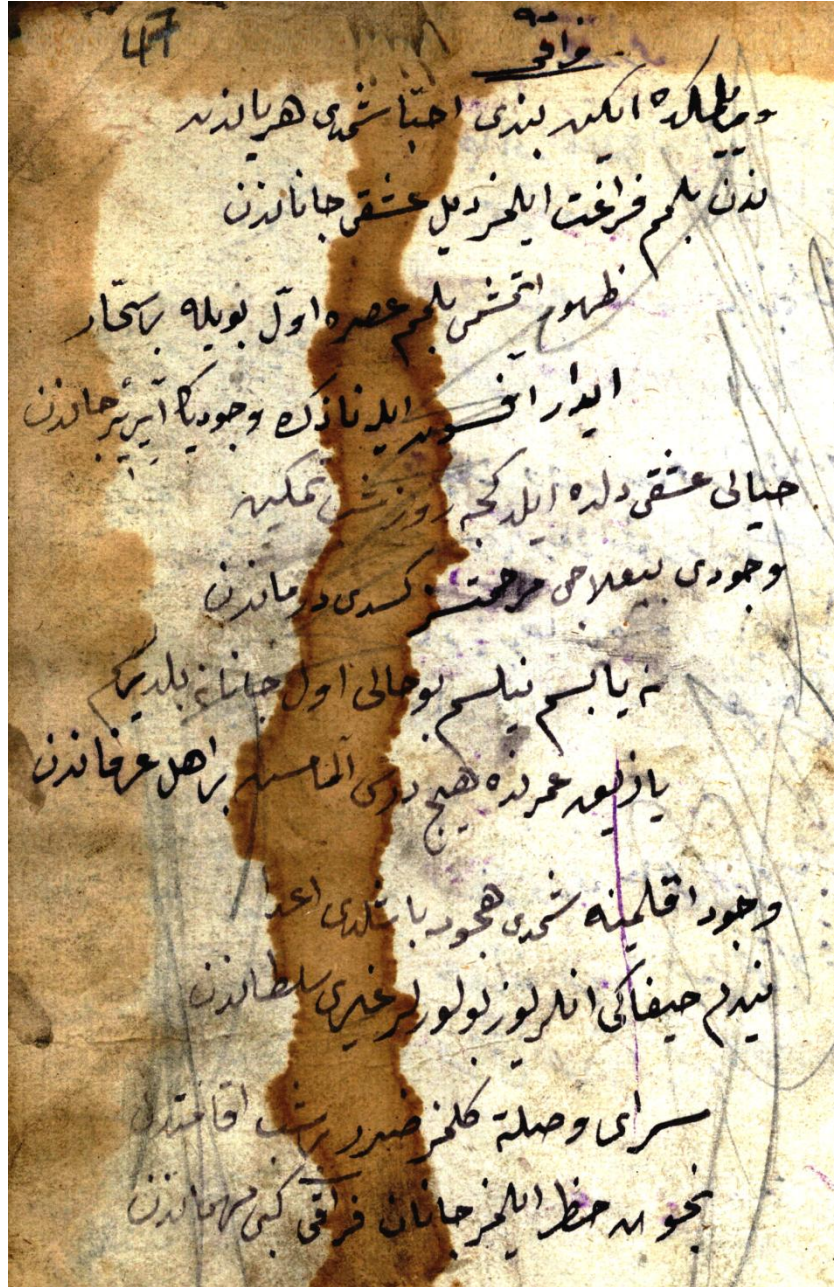 47
فراقی
ایکن بندی احبا شمدی هر یاندن
ندن بلمم فراغت ایلمز دیل عشقی جاناندن
ظهور اتمشمی بلمم عصره اول بویله بر سحار
ایدار افسون ایله نازک وجودیکا آیریر جاندن
خیالی عشقی دلده ایلد کجه روز شب تمکین
وجودی بیعلاجی مرحمتسز کسدی درماندن
نه یابسم نیلسم بو حالی اول جانانه بلدیرسم
یازیق عمرنده هیچ درس آلمامسن بر اهل عرفاندن
وجود اقلمینه شمدی هجوم باشلدی اعدا
نیدلم حیفاکی انلر یوز بولورلر غیری سلطاندن
سرای وصلة کلمز بر شب اقامتدن
نجون حظ ایلمز جانان فراقی کبی مهماندن